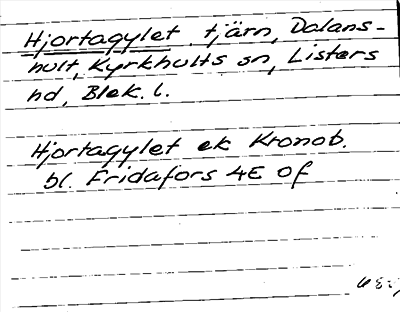 Hjortagylet, tjärn, Dalans-
hult, Kyrkhults sn, Listers
hd, Blek. l.
Hjortagylet ek Kronob.
bl. Fridafors 4E 0f